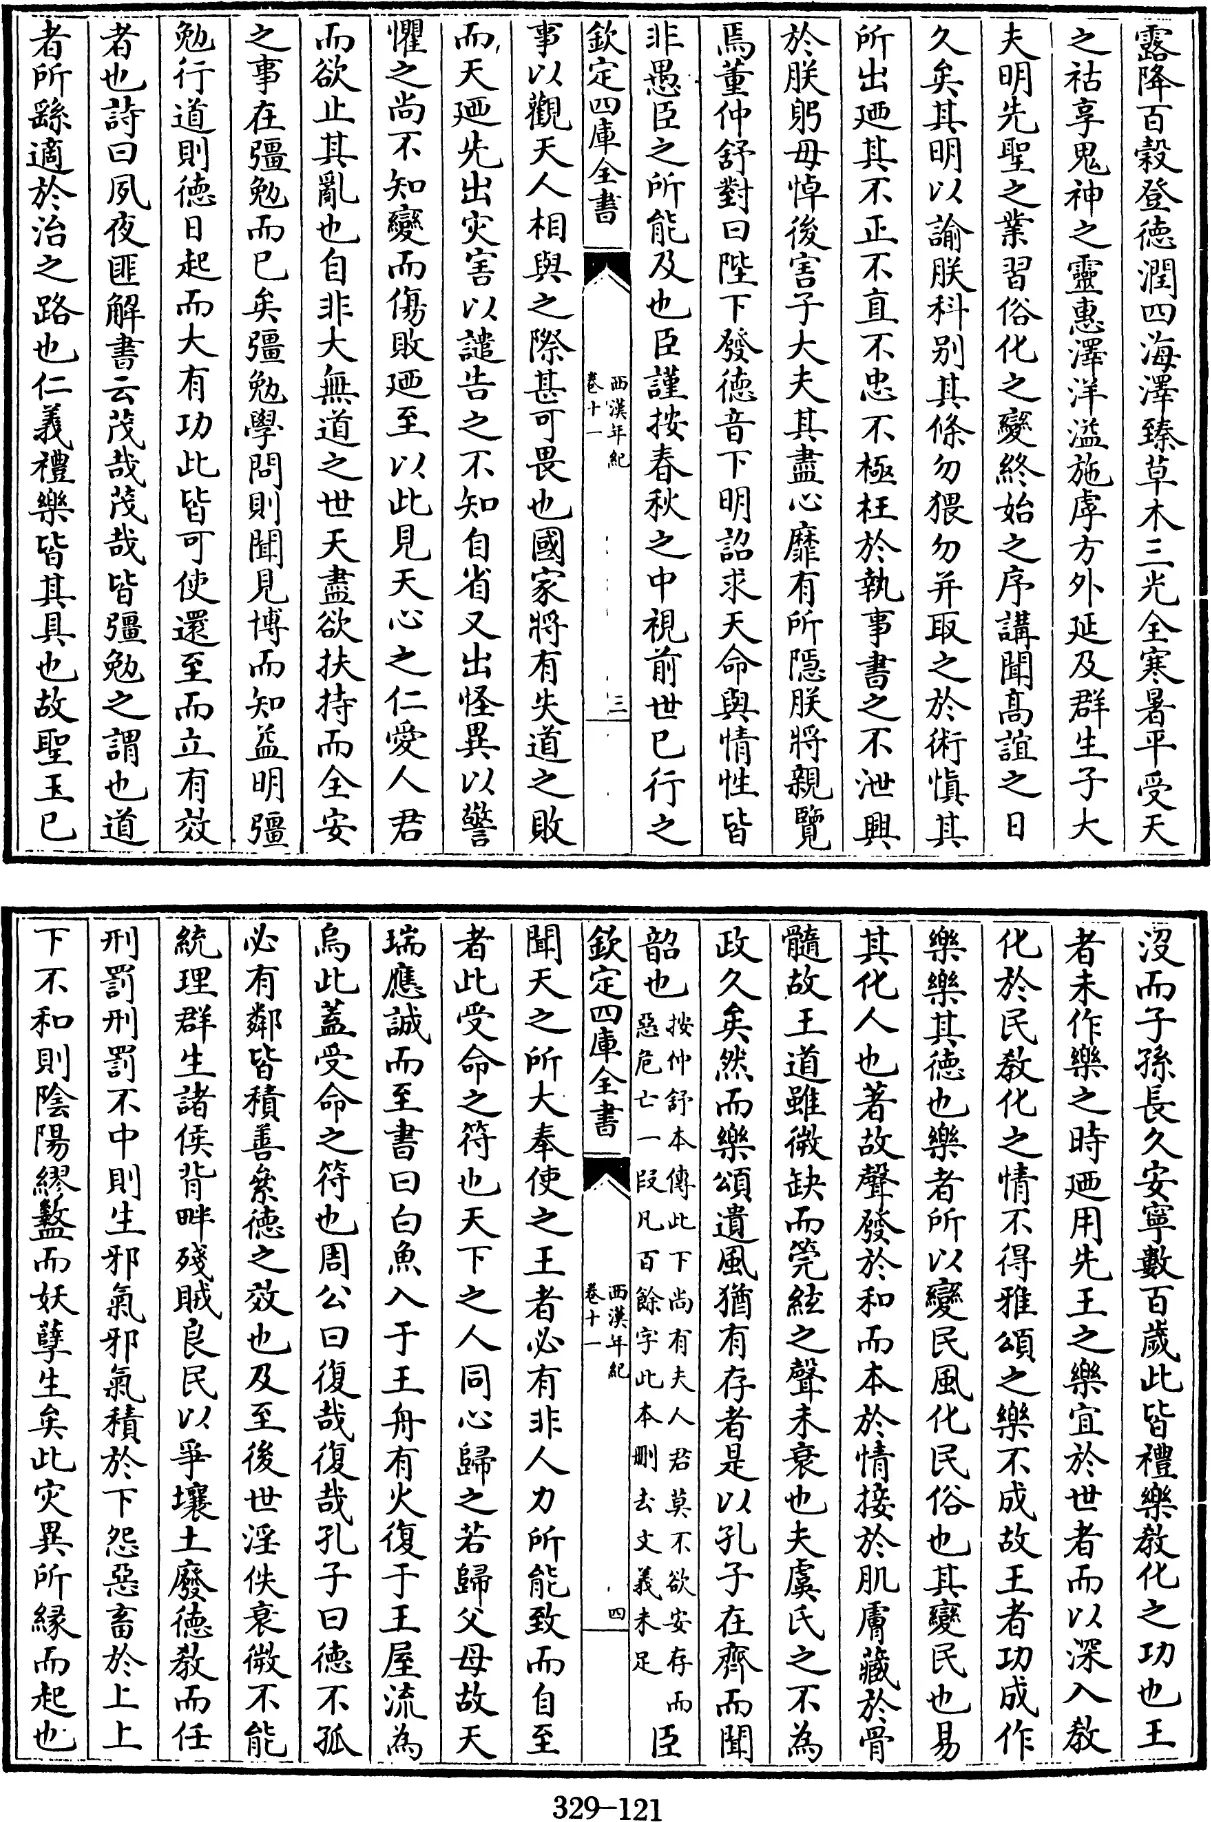 露降百穀登徳潤四海澤臻草木三光全寒暑平受天
之祜享鬼神之靈惠澤洋溢施虖方外延及群生子大
夫明先聖之業習俗化之變終始之序講聞髙誼之日
久矣其明以諭朕科别其條勿猥勿并取之於術慎其
所出廼其不正不直不忠不極枉於執事書之不泄興
於朕躬毋悼後害子大夫其盡心靡有所隠朕將親覽
焉董仲舒對曰陛下發徳音下明詔求天命與情性皆
非愚臣之所能及也臣謹按春秋之中視前世已行之
欽定四庫全書
西漢年紀
卷十一
三
事以觀天人相與之際甚可畏也國家將有失道之敗
而天廼先出灾害以譴告之不知自省又出怪異以警
懼之尚不知變而傷敗廼至以此見天心之仁愛人君
而欲止其亂也自非大無道之世天盡欲扶持而全安
之事在彊勉而已矣彊勉學問則聞見博而知益明彊
勉行道則徳日起而大有功此皆可使還至而立有效
者也詩曰夙夜匪解書云茂哉茂哉皆彊勉之謂也道
者所繇適於治之路也仁義禮樂皆其具也故聖王已
沒而子孫長久安寧數百歲此皆禮樂教化之功也王
者未作樂之時廼用先王之樂宜於世者而以深入教
化於民教化之情不得雅頌之樂不成故王者功成作
樂樂其徳也樂者所以變民風化民俗也其變民也易
其化人也著故聲發於和而本於情接於肌膚藏於骨
髓故王道雖微缺而筦絃之聲未衰也夫虞氏之不為
政久矣然而樂頌遺風猶有存者是以孔子在齊而聞
韶也按仲舒本傳此下尚有夫人君莫不欲安存而惡危亡一段凡百餘字此本刪去文義未足臣
欽定四庫全書
西漢年紀
卷十一
四
聞天之所大奉使之王者必有非人力所能致而自至
者此受命之符也天下之人同心歸之若歸父母故天
瑞應誠而至書曰白魚入于王舟有火復于王屋流為
烏此蓋受命之符也周公曰復哉復哉孔子曰徳不孤
必有鄰皆積善絫徳之效也及至後世淫佚衰微不能
統理群生諸侯背畔殘賊良民以爭壤土廢徳教而任
刑罰刑罰不中則生邪氣邪氣積於下怨惡畜於上上
下不和則陰陽繆盭而妖孽生矣此灾異所緣而起也
329-121